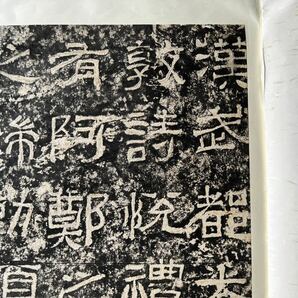 漢武都太
敦詩悅禮
有阿鄭之
之瑞動順